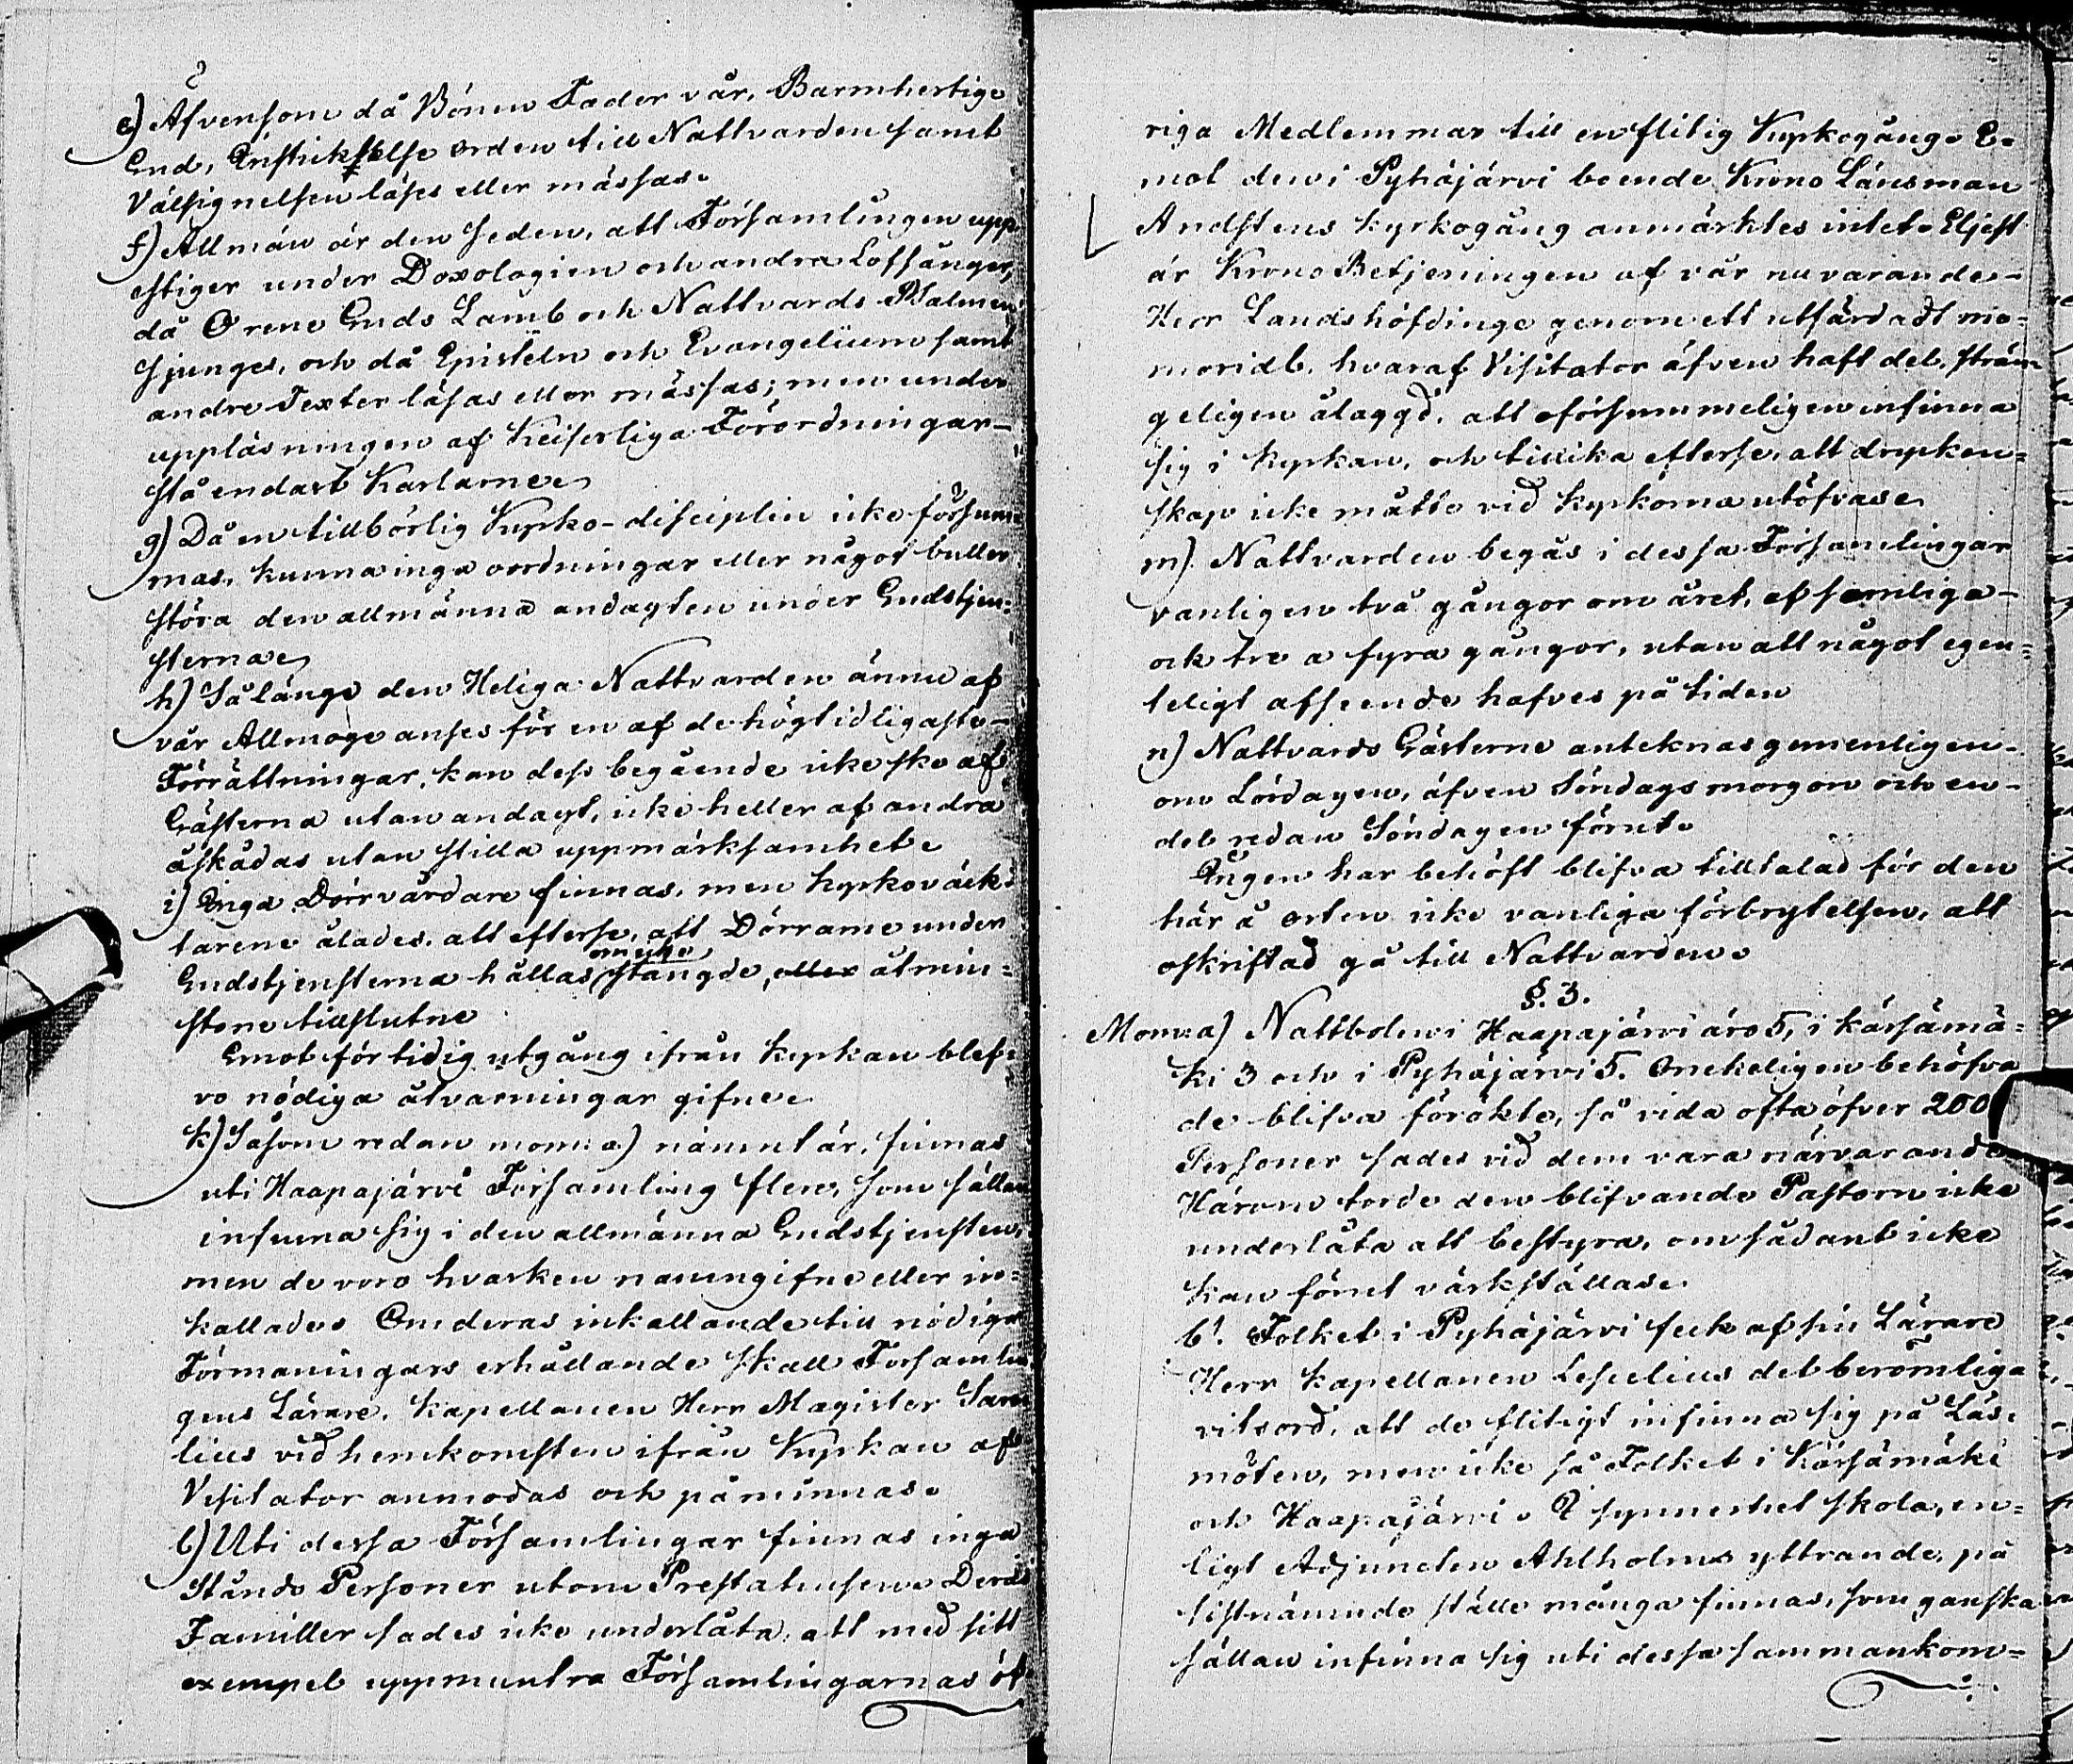 e) Äfvensom då Bönen Fader vår, Barmhertige
Gud, Instiktelse orden till Nattvarden samt
Välsignelsen läses eller mässas.
f) Allmän är den seden, att Församlingen upp
stiger under Doxologien och andra Lofsånger,
då O rene Guds Lamb och Nattvards Psalmen
sjunges, och då Episteln och Evangelium samt
andre Texter läsas eller mässas; men under
uppläsningen af Keiserliga Förordningar
stå endast Karlarne.
g) Då en tillbörlig Kyrko-disciplin icke försum=
mas, kunna inga oordningar eller något buller
störa den allmänna andagten under Gudstjen=
sterna.
h) Så länge den Heliga Nattvarden ännu af
vår Allmoge anses för en af de högtidligaste
Förrättningar, kan dess begående icke ske af
Gästerna utan andagt, icke heller af andra
åskådas utan stilla uppmärksamhet.
i) Inga Dörrvårdare finnas, men kyrkoväk=
tarene ålades, att efterse, att Dörrarne under
Gudstjensterna hållas stängde, eller åtmin=
stone tillslutne
Emot förtidig utgång ifrån kyrkan blef=
vo nödiga åtvarningar gifne.
k) Såsom redan mom: a) nämnt är, finnas
uti Haapajärvi Församling flere, som sällan
infinna sig i den allmänna Gudstjensten,
men de voro hvarken namngifne eller in=
kallade. Om deras inkallande till nödiga
Förmaningars erhållande skall Församlin
gens Lärare, Kapellanen Herr Magister
lius vid hemkomsten ifrån Kyrkan af
Visitator anmodas och påminnas.
l) Uti dessa Församlingar finnas inga
Stånds Personer utom Prestahusen. Deras
Familler sades icke underlåta, att med sitt
exempel uppmuntra Församlingarnas öf
riga Medlemmar till en flitig Kyrkogång. E=
mot den i Pyhäjärvi boende Krono Länsman
Andstens kyrkogång anmärktes intet. Eljest
är Krono Betjeningen af vår nuvarande
Herr Landshöfdinge genom ett utfärdadt me=
morial, hvaraf Visitator äfven haft del, strän=
geligen ålaggd, att oförsummeligen infinna
sig i kyrkan, och tillika efterse, att drycken=
skap icke måtte vid kyrkorna utöfvas.
m) Nattvarden begås i dessa Församlingar
vanligen två gångor om året, af somliga
ock tre a fyra gångor, utan att något egen=
teligt afseende hafves på tiden
n) Nattvards Gästerne anteknas gemenligen
om Lördagen, äfven Söndags morgon och en
del redan Söndagen förut.
Ingen har behöft blifva tilltalad för den
här å orten icke vanliga förbrytelsen, att
oskriftad gå till Nattvarden.
§. 3.
Mom: a) Nattbolen i Haapajärvi äro 5, i Kärsämä=
ki 3 och i Pyhäjärvi 5. Onekeligen behöfva
de blifva förökte, så vida ofta öfver 200
Personer sades vid dem vara närvarande
Härom torde den blifvande Pastorn icke
underlåta att bestyra, om sådant icke
kan förut värkställas.
b). Folket i Pyhäjärvi feck af sin Lärare
Herr Kapellanen Lescelius det berömliga
vitsord, att de flitigt infinna sig på Läs=
möten, men icke så Folket i Kärsämäki
och Haapajärvi. I synnerhet skola, en=
ligt Adjuncten Ahlholms yttrande, på
sistnämnde ställe många finnas, som ganska
sällan infinna sig uti dessa sammankom=